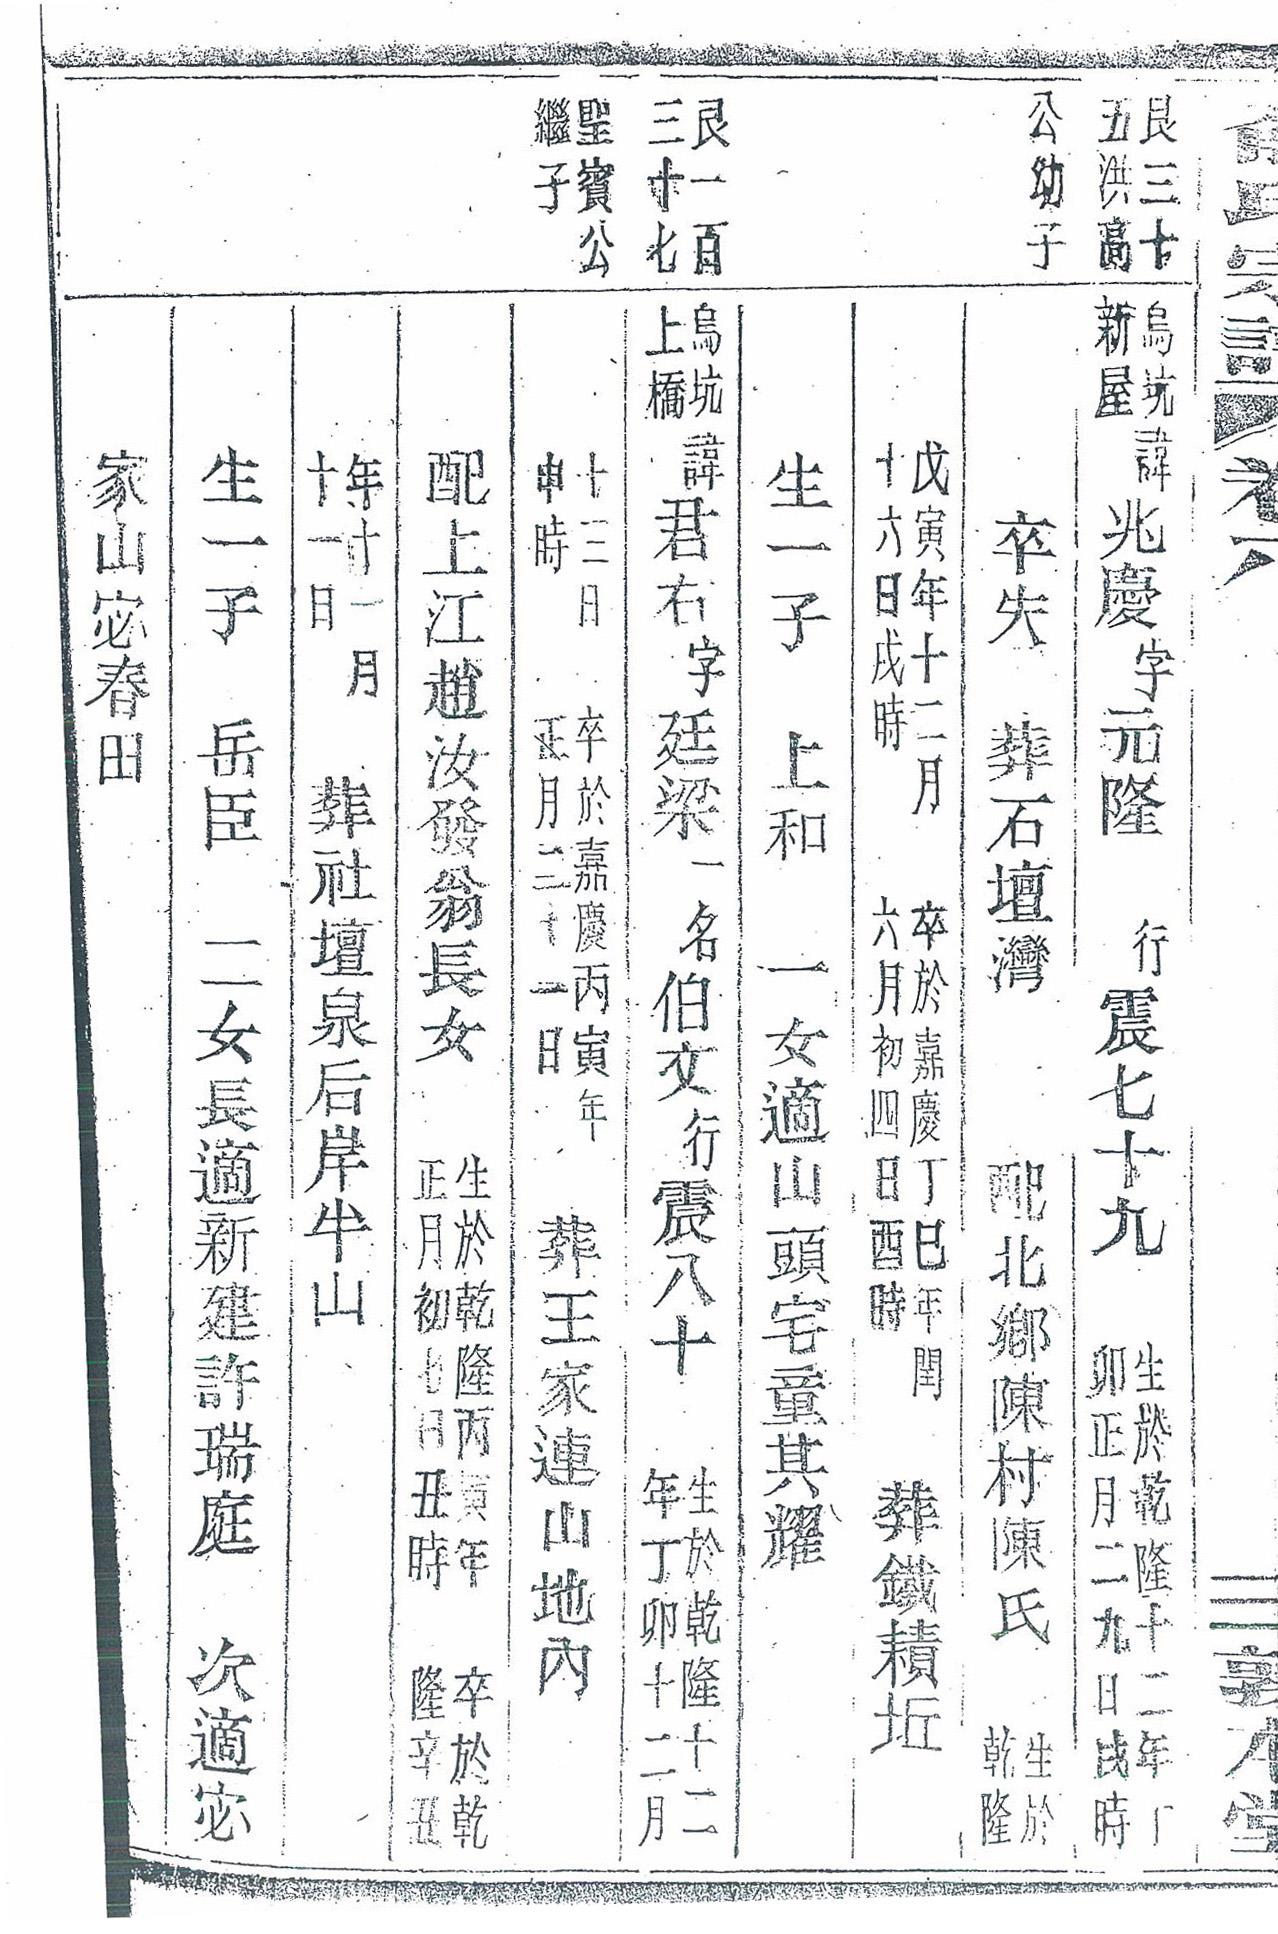 氏宗譜 卷 三 敦本堂
艮三十
五洪高
公幼子
烏坑
新屋
諱兆慶字元隆 行震七十九 生於乾隆十二年丁
卯正月二九日戌時
卒失 葬石壇灣 配北鄉陳村陳氏 生於
乾隆
戊寅年十二月
十六日戌時
卒於嘉慶丁巳年閏
六月初四日酉時
葬鐵積坵
生一子 上和 一女適山頭宅童其耀
艮一百
三十七
聖賓公
繼子
烏坑
上橋
諱君右字廷梁一名伯文行震八十 生於乾隆十二
年丁卯十二月
十二日
申時
卒於嘉慶丙寅年
正月二十一日
葬王家連山地內
配上江趙汝發翁長女 生於乾隆丙寅年
正月初七日丑時
卒於乾
隆辛丑
年十一月
十一日
葬社壇泉后岸半山
生一子 岳臣 二女長適新建許瑞庭 次適宓
家山宓春田